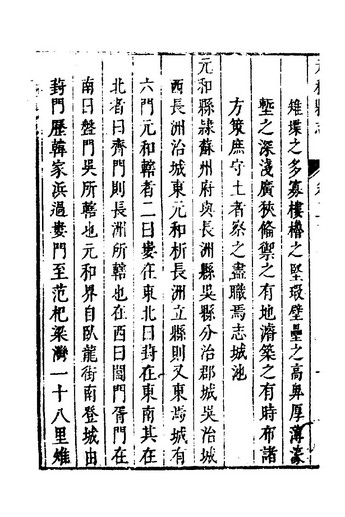 雉環之多寡樓櫓之堅瑕壁壘之高卑厚薄濠
塹之深淺廣狹脩禦之有地濬築之有時布諸
方策庶守土者察之盡職焉志城池
元和縣隸蘇州府與長洲縣吳縣分治郡城吳治城
西長洲治城東元和析長洲立縣則又東焉城有
六門元和轄者二曰婁在東北曰葑在東南其在
北者曰齊門則長洲所轄也在西曰閶門胥門在
南曰盤門吳所轄也元和界自臥龍街南登城由
葑門歷韓家浜過婁門至范杷梁灣一十八里雉